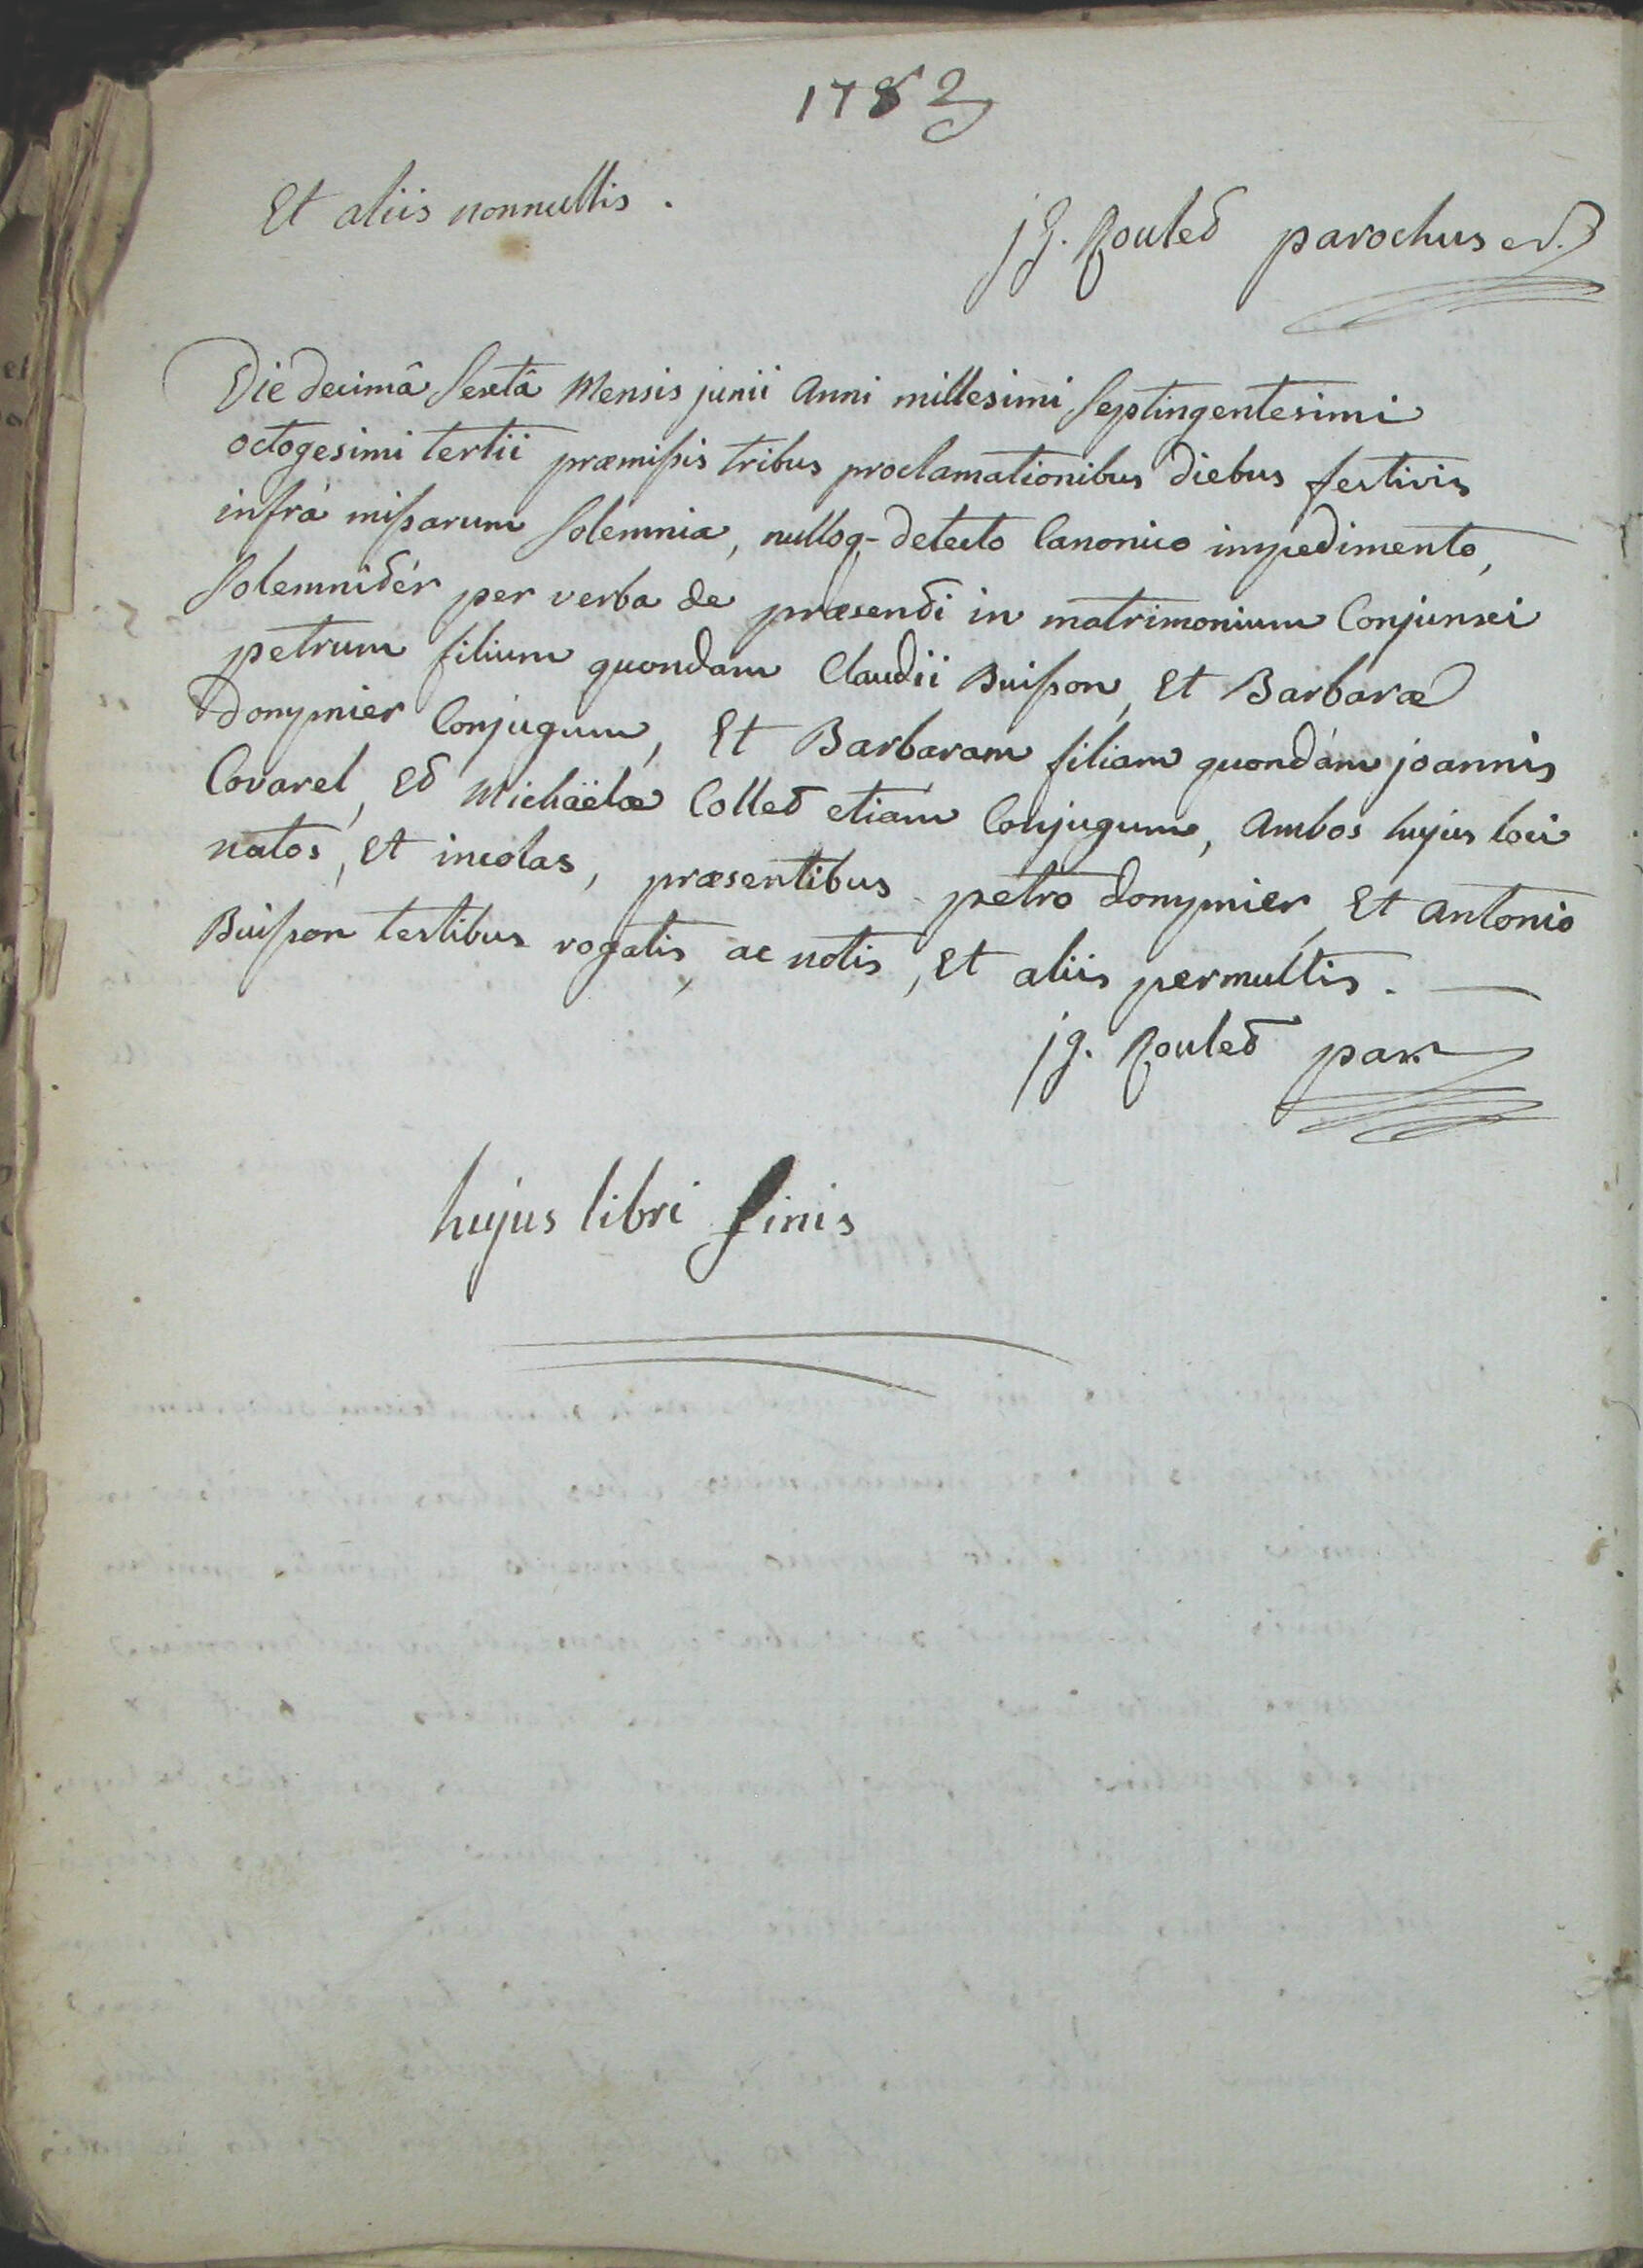 1783
Et aliis nonnullis.
jg. Roulet parochus
Die decimâ sextâ Mensis junii Anni millesimi septingentesimi
octogesimi tertii præmissis tribus proclamationibus diebus festivis
infrà missarum solemnia, nulloq- detecto Canonico impedimento,
solemnitér per verba de præsenti in matrimonium Conjunxi
petrum filium quondam Claudii Buisson, Et Barbaræ
Donymier Conjugum, Et Barbaram filiam quondám joannis
Covarel, Et Michäelæ Collet etiam Conjugum, Ambos hujus loci
natos, Et incolas, præsentibus petro Donymier, Et Antonio
Buisson testibus rogatis, ac notis, Et aliis permultis.
jg. Roulet par.
hujus libri finis